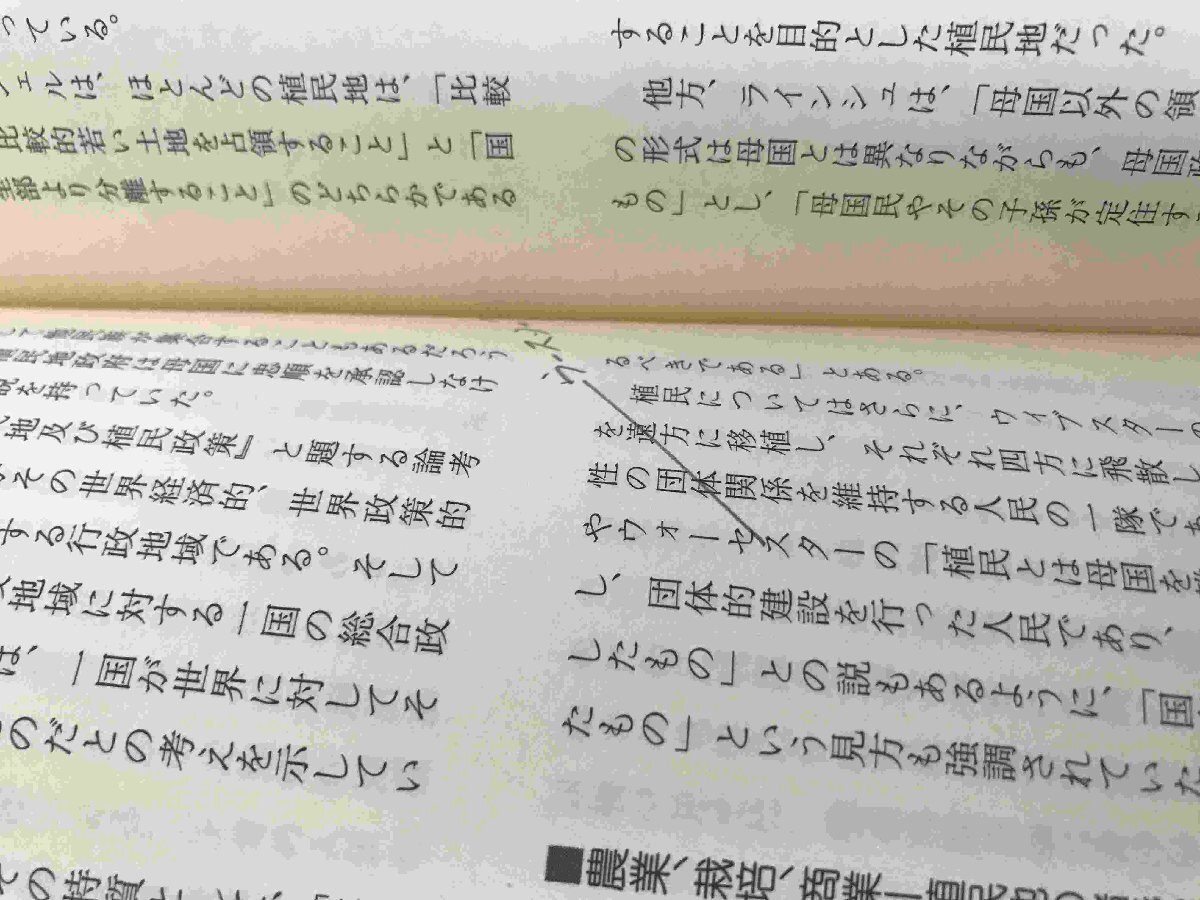 っている。
ェルは、ほとんどの植民地は、「比較
比較的若い土地を占領すること」と「国
部より分離すること」のどちらかである
することを目的とした植民地だった。
他方、ラインシュは、「母国以外の領
の形式は母国とは異なりながらも、母国政
もの」とし、「母国民やその子孫が定住す
することもあるだろう
民地政府は母国に忠順を承認しなけ
を持っていた。
地及び植民政策』と題する論考
その世界経済的、世界政策的
する行政地域である。そして
地域に対する一国の総合政
は、一国が世界に対してそ
のだとの考えを示してい
の特質と
るべきである」とある。
植民についてはさらに、ウィブスターの
を遠方に移植し、それぞれ四方に飛散し
性の団体関係を維持する人民の一隊であ
やウォーセスターの「植民とは母国を
し、団体的建設を行った人民であり、
したもの」との説もあるように、「国
たもの」という見方も強調されていた
■農業、栽培、商業―植民地の